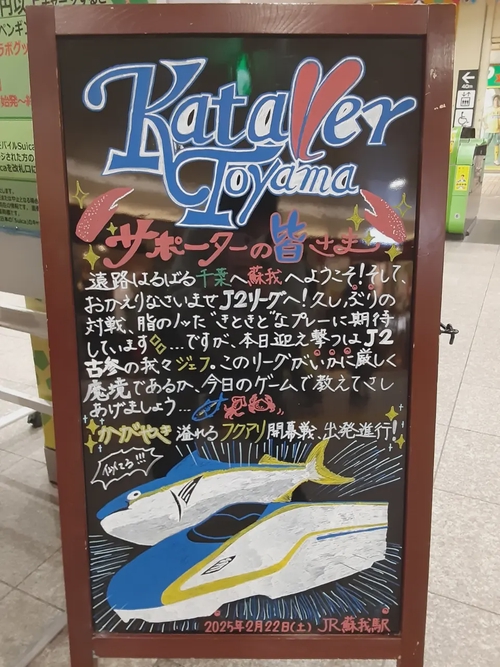 Kataller
Toyama
サポーターの皆さまへ
遠路はるばる千葉へ蘇我へようこそ！そして、
おかえりなさいませJ2リーグへ！久しぶりの
対戦、脂のノッた"きときと"なプレーに期待
しています...ですが、本日迎え撃つはJ2
古参の我々ジェフ。このリーグがいかに厳しく
魔境であるか、今日のゲームで教えてさし
あげましょう...
かがやき溢れるフクアリ開幕戦、出発進行！
似てる!!!
2025年2月22日(土) JR蘇我駅